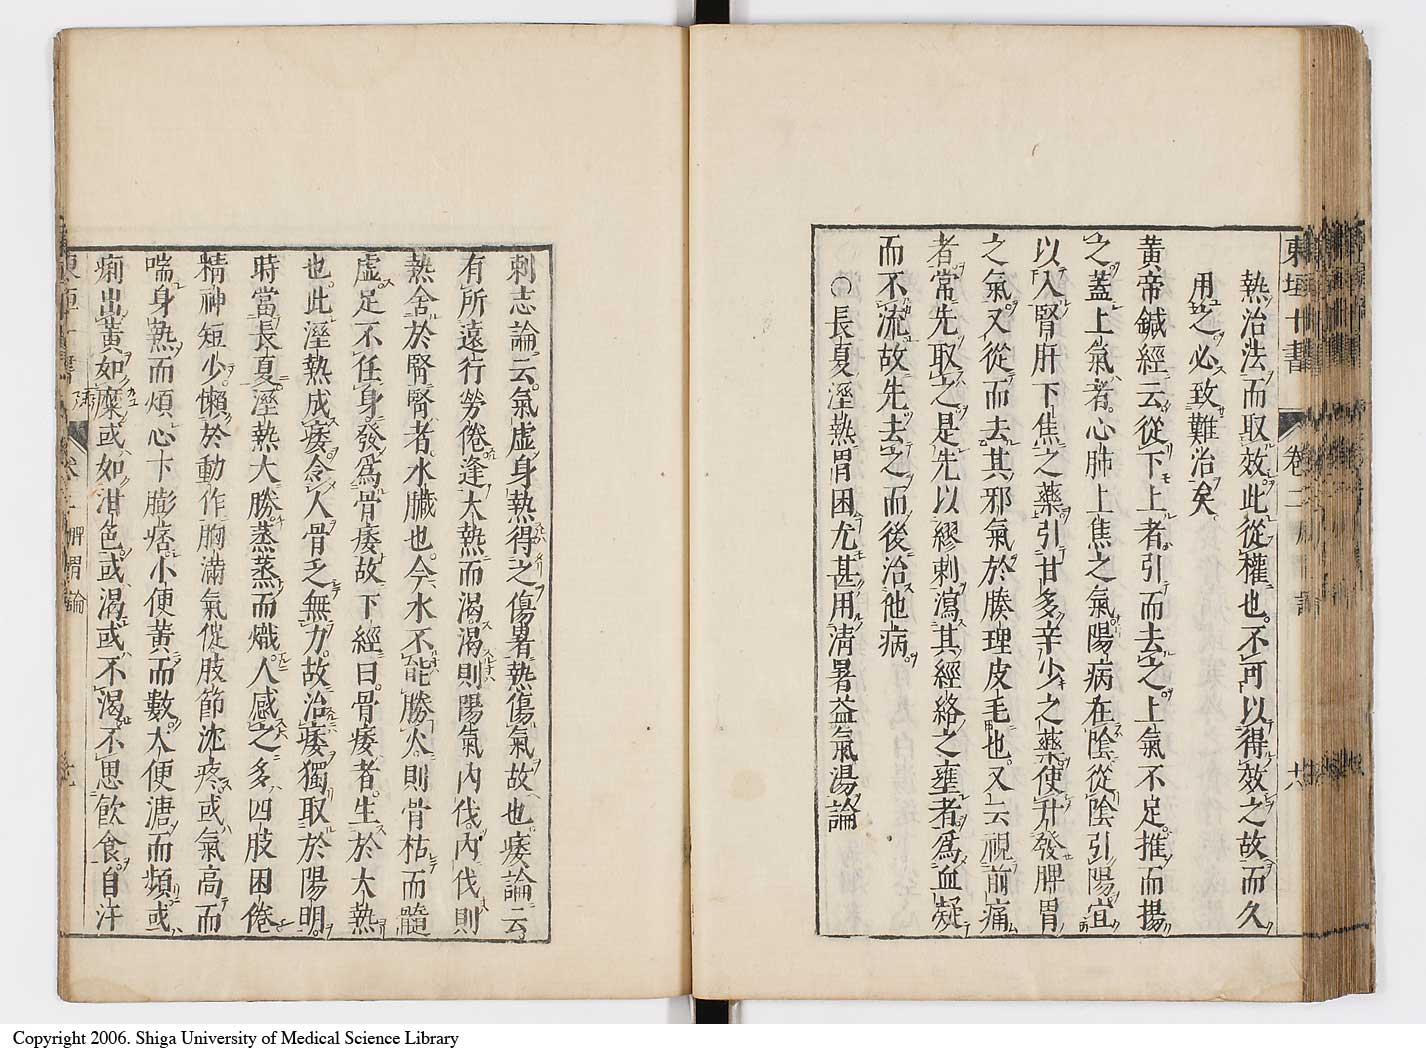 東垣十書 卷二 廿八
熱治法而取效此從權也不可以得效之故而久
用之必致難治矣
黄帝鍼經云從下上者引而去之上氣不足推而揚
之蓋上氣者心肺上焦之氣陽病在陰從陰引陽宜
以入腎肝下焦之藥引甘多辛少之藥使升發脾胃
之氣又從而去其邪氣於腠理皮毛也又云視前痛
者常先取之是先以繆刺瀉其經絡之壅者爲血凝
而不流故先去之而後治他病
〇長夏溼熱胃困尤甚用清暑益氣湯論
刺志論云氣虛身熱得之傷暑熱傷氣故也痿論云
有所遠行勞倦逢大熱而渴渴則陽氣内伐内伐則
熱舍於腎腎者水臟也今水不能勝火則骨枯而髓
虛足不任身發爲骨痿故下經曰骨痿者生於大熱
也此溼熱成痿令人骨乏無力故治痿獨取於陽明
時當長夏溼熱大勝蒸蒸而熾人感之多四肢困倦
精神短少懶於動作胸滿氣促肢節沈疼或氣高而
喘身熱而煩心下膨痞小便黄而數大便溏而頻或
痢出黄如糜或如泔色或渴或不渴不思飲食自汗
卷二 脾胃論
Copyright 2006. Shiga University of Medical Science Library